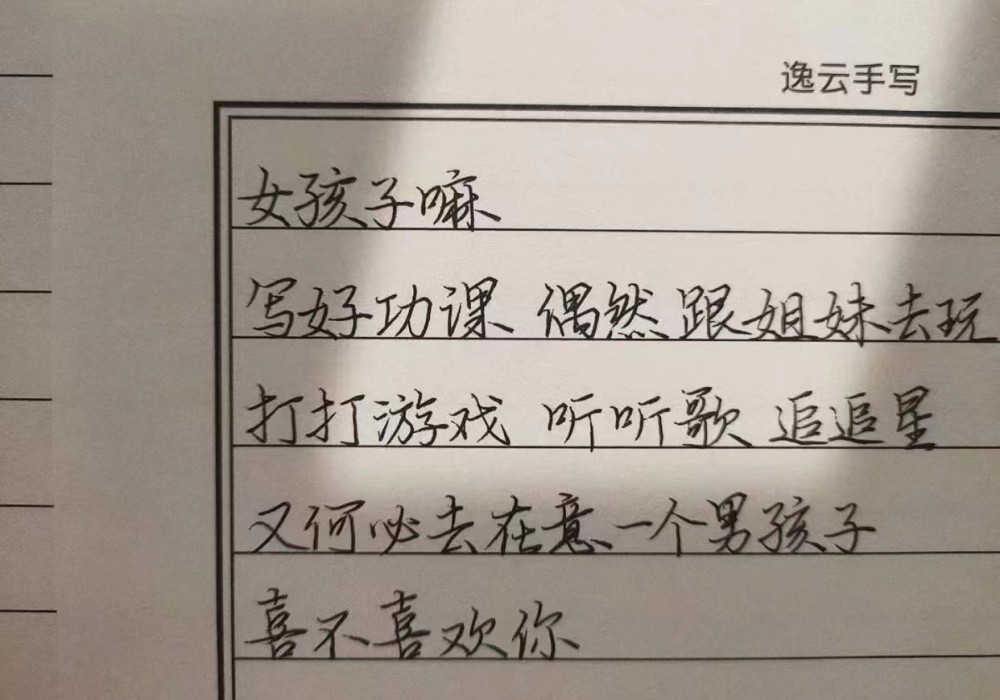 逸云手写
女孩子嘛
写好功课 偶然跟姐妹去玩
打打游戏 听听歌 追追星
又何必去在意一个男孩子
喜不喜欢你